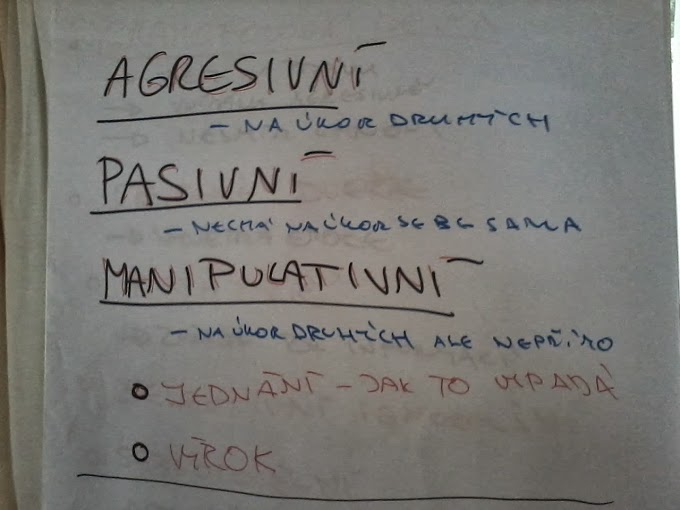 AGRESIVNÍ
- NA ÚKOR DRUHÝCH
PASIVNÍ
- NECHÁ NA ÚKOR SEBE SAMA
MANIPULATIVNÍ
- NA ÚKOR DRUHÝCH ALE NEPŘÍMO
JEDNÁNÍ - JAK TO VYPADÁ
VÝROK